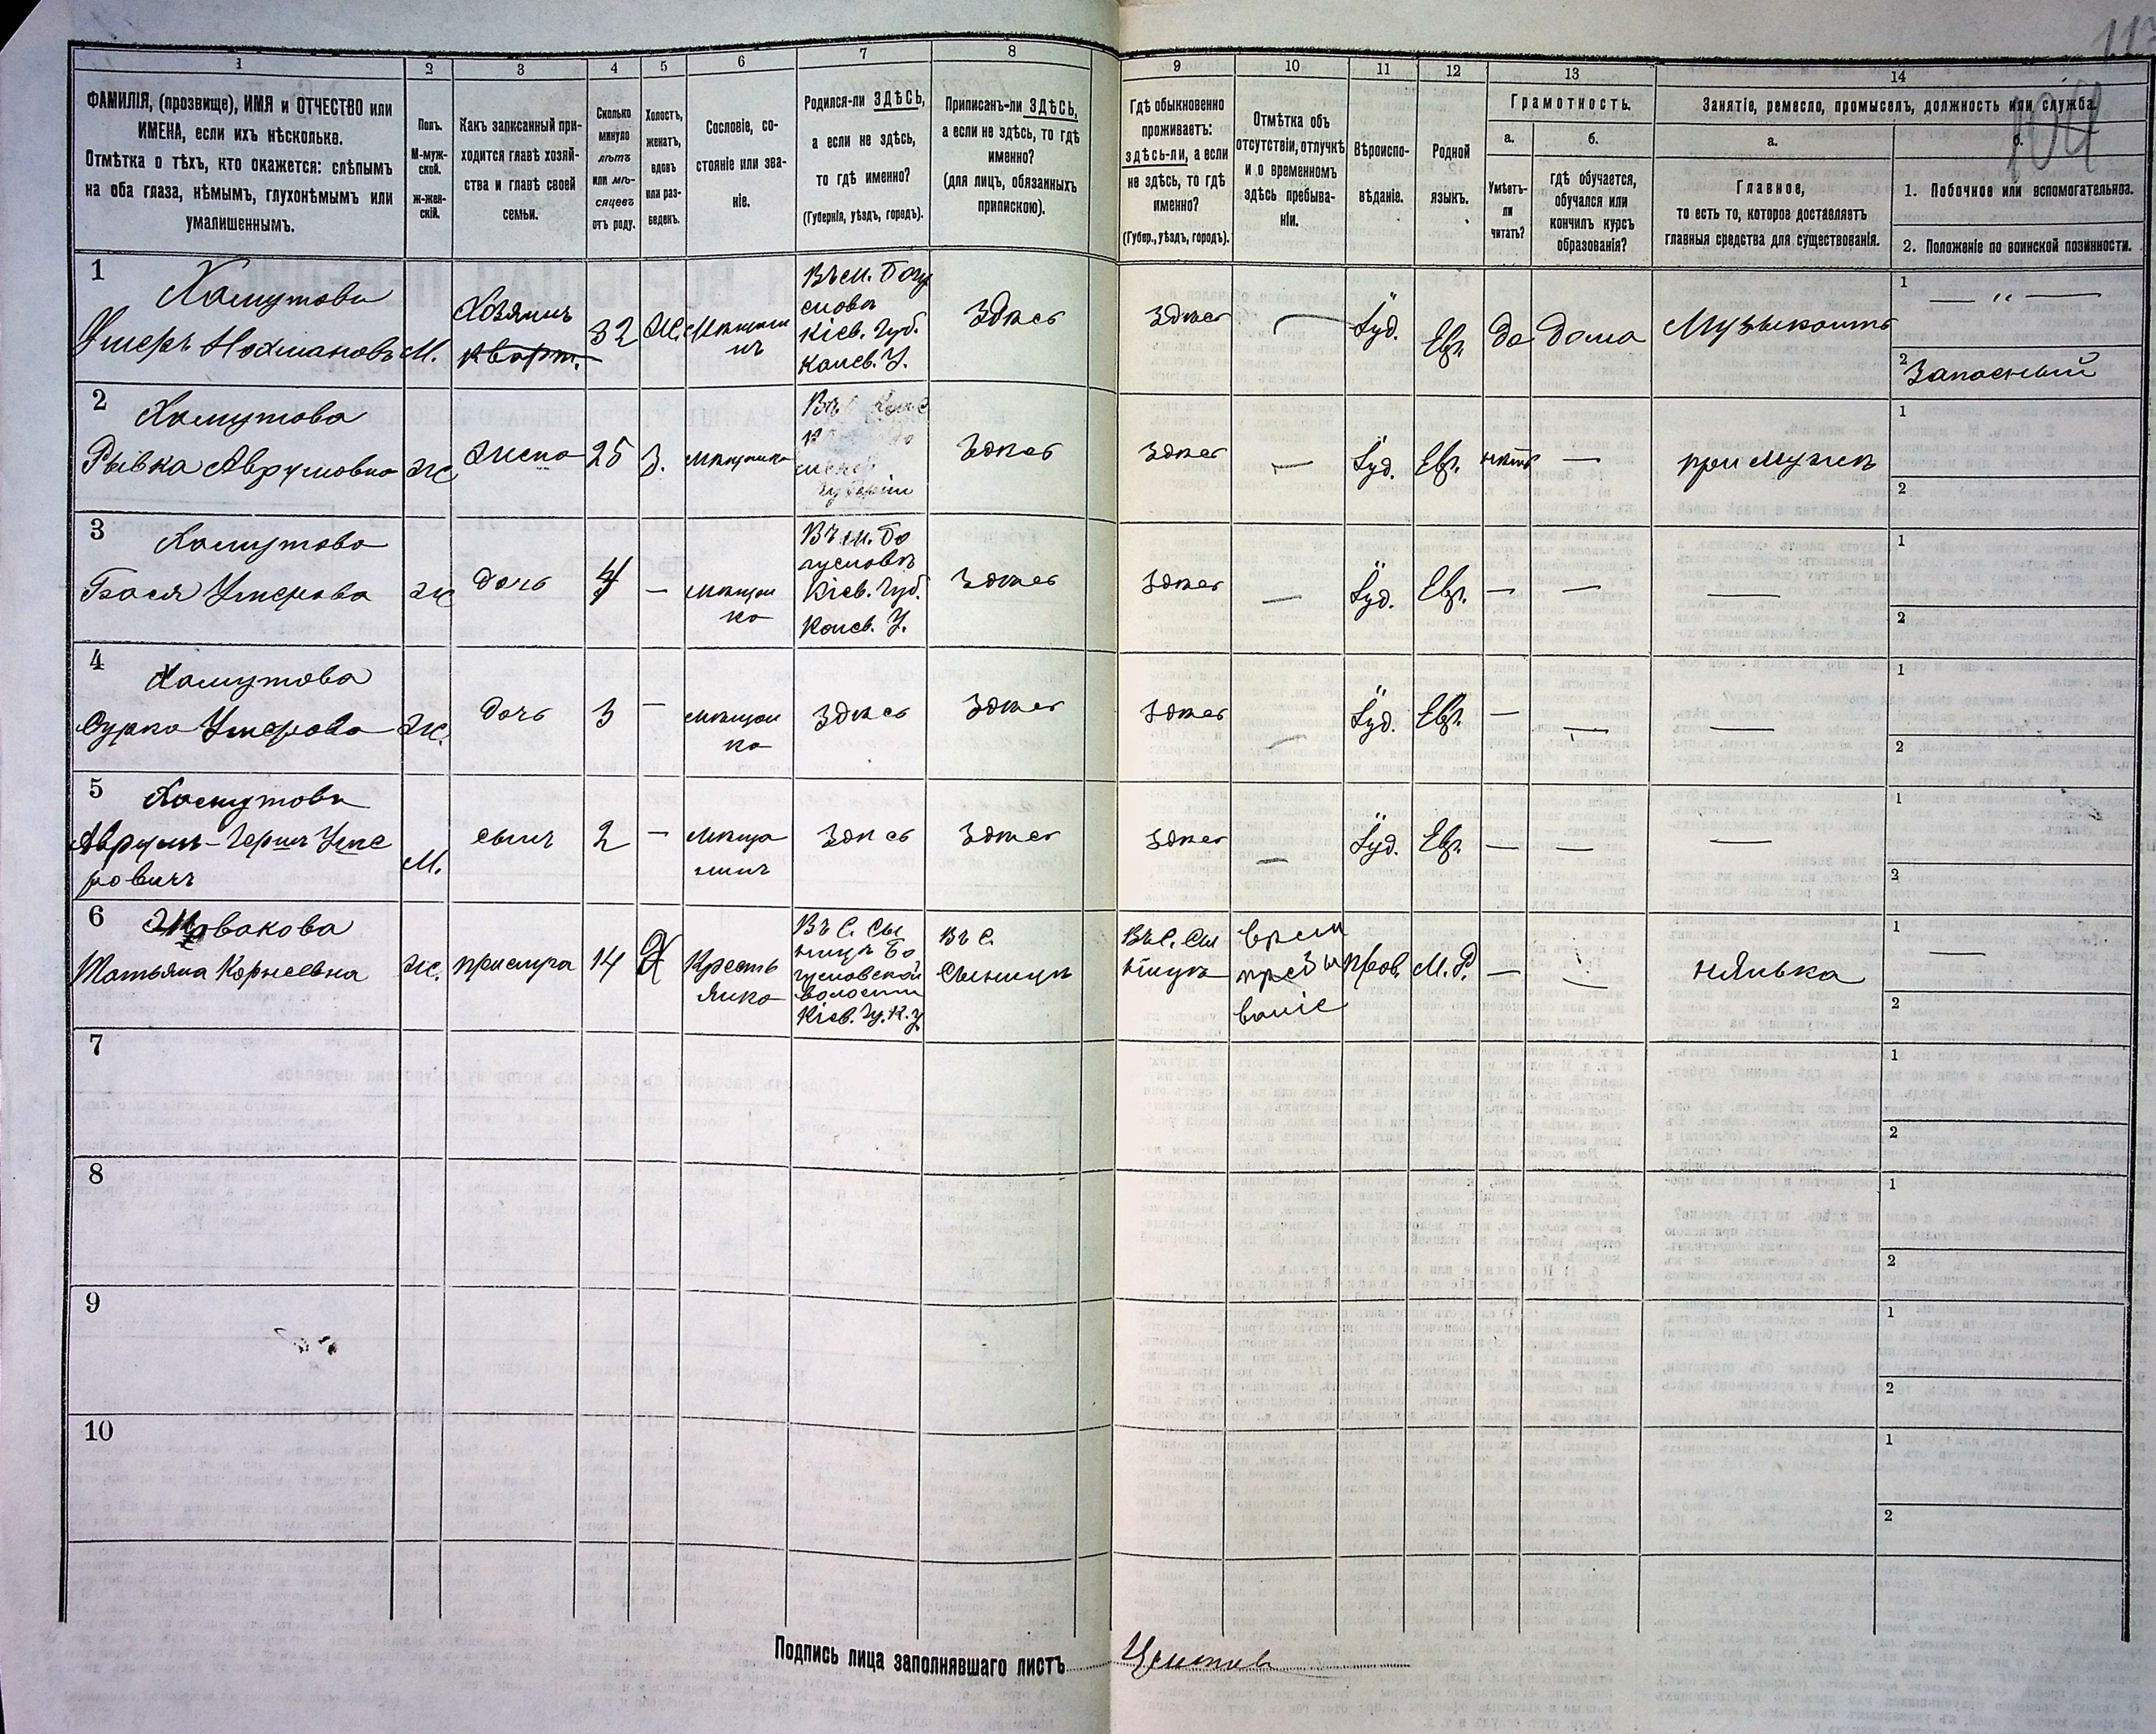 113
104
1
2
3
4
5
6
7
8
9
10
11
12
13
14
ФАМИЛІЯ, (прозвище), ИМЯ и ОТЧЕСТВО или
ИМЕНА, если ихъ нѣсколько.
Отмѣтка о тѣхъ, кто окажется: слѣпымъ
на оба глаза, нѣмымъ, глухонѣмымъ или
умалишеннымъ.
Полъ.
М-муж-
ской.
ж-жен-
скій.
Какъ записанный при-
ходится главѣ хозяй-
ства и главѣ своей
семьи.
Сколько
минуло
лѣтъ
или мѣ-
сяцевъ
отъ роду.
Холостъ,
женатъ,
вдовъ
или раз-
веденъ.
Сословіе, со-
стояніе или зва-
ніе.
Родился-ли ЗДѢСЬ,
а если не здѣсь,
то гдѣ именно?
(Губернія, уѣздъ, городъ).
Приписанъ-ли ЗДѢСЬ,
а если не здѣсь, то гдѣ
именно?
(для лицъ, обязанныхъ
припискою).
Гдѣ обыкновенно
проживаетъ:
здѣсь-ли, а если
не здѣсь, то гдѣ
именно?
(Губер., уѣздъ, городъ).
Отмѣтка объ
отсутствіи, отлучкѣ
и о временномъ
здѣсь пребыва-
ніи.
Вѣроиспо-
вѣданіе.
Родной
языкъ.
Грамотность.
а.
Умѣетъ-
ли
читать?
б.
гдѣ обучается,
обучался или
кончилъ курсъ
образованія?
Занятіе, ремесло, промыселъ, должность или служба.
а.
Главное,
то есть то, которое доставляетъ
главныя средства для существованія.
б.
1. Побочное или вспомогательноз.
2. Положеніе по воинской повинности.
1
Хомутовъ
Ушеръ Нохмановъ
М.
Хозяинъ
кварт.
32
Ж.
Мѣщани
нъ
Въ м. Богу
славѣ
Кіев. Губ.
Канев. У.
Здѣсь
Здѣсь
Іуд.
Евр.
да
дома
Музыкантъ
1 — " —
2 Запасный
2
Хомутова
Рывка Аврумовна
ж
жена
25
З.
мѣщанка
Въ
губерніи
Здѣсь
Здѣсь
—
Іуд.
Евр.
нѣтъ
—
при мужѣ
1
2
3
Хомутова
Бася Ушерова
ж
дочь
4
—
мѣщан
ка
Въ м. Бо
гуславѣ
Кіев. Губ.
Канев. У.
Здѣсь
Здѣсь
—
Іуд.
Евр.
—
—
—
1
2
4
Хомутова
Сурка Ушерова
ж.
дочь
3
—
мѣщан
ка
Здѣсь
Здѣсь
Здѣсь
—
Іуд.
Евр.
—
—
—
1
2
5
Хомутовъ
Аврумъ-Гершъ Уше
ровичъ
М.
сынъ
2
—
мѣща
нинъ
Здѣсь
Здѣсь
Здѣсь
—
Іуд.
Евр.
—
—
—
1
2
6
Татьяна Корнеевна
ж.
прислуга
14
Кресть
янка
Въ С. Сы
ницѣ Бо
гуславской
волости
Кіев. Гу. К. У.
Въ С.
Сыницѣ
Въ С. Сы
ницѣ
врем
пребы
ваніе
прав.
М. Р.
—
—
нянька
1 —
2
7
1
2
8
1
2
9
1
2
10
1
2
Подпись лица заполнявшаго листъ